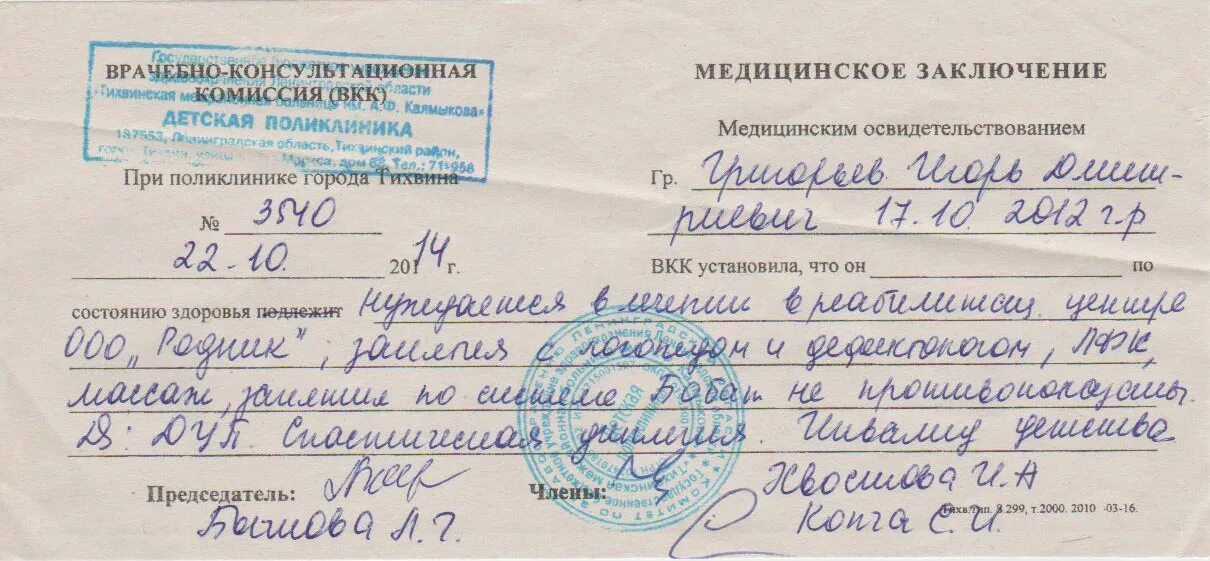 Государственное бюджетное учреждение
здравоохранения Ленинградской области
"Тихвинская межрайонная больница им. А.Ф. Калмыкова"
ДЕТСКАЯ ПОЛИКЛИНИКА
187553, Ленинградская область, Тихвинский район,
город Тихвин, улица Маркса, дом 62 Тел.: 711958
ВРАЧЕБНО-КОНСУЛЬТАЦИОННАЯ
КОМИССИЯ (ВКК)
При поликлинике города Тихвина
№ 3540
22.10. 2014 г.
МЕДИЦИНСКОЕ ЗАКЛЮЧЕНИЕ
Медицинским освидетельствованием
Гр. Григорьев Игорь Дмит-
риевич 17.10. 2012 г.р
ВКК установила, что он по
состоянию здоровья подлежит нуждается в лечении в реабилитац. центре
ООО „Родник", занятия с логопедом и дефектологом, ЛФК,
массаж, занятия по системе Бобат не противопоказаны.
Дз: ДЦП. Спастическая диплегия. Инвалид детства
Председатель:
Члены: Хвостова И.А
Л.Г. Копча С.И.
Тихв.тип. З.299, т.2000. 2010 -03-16.